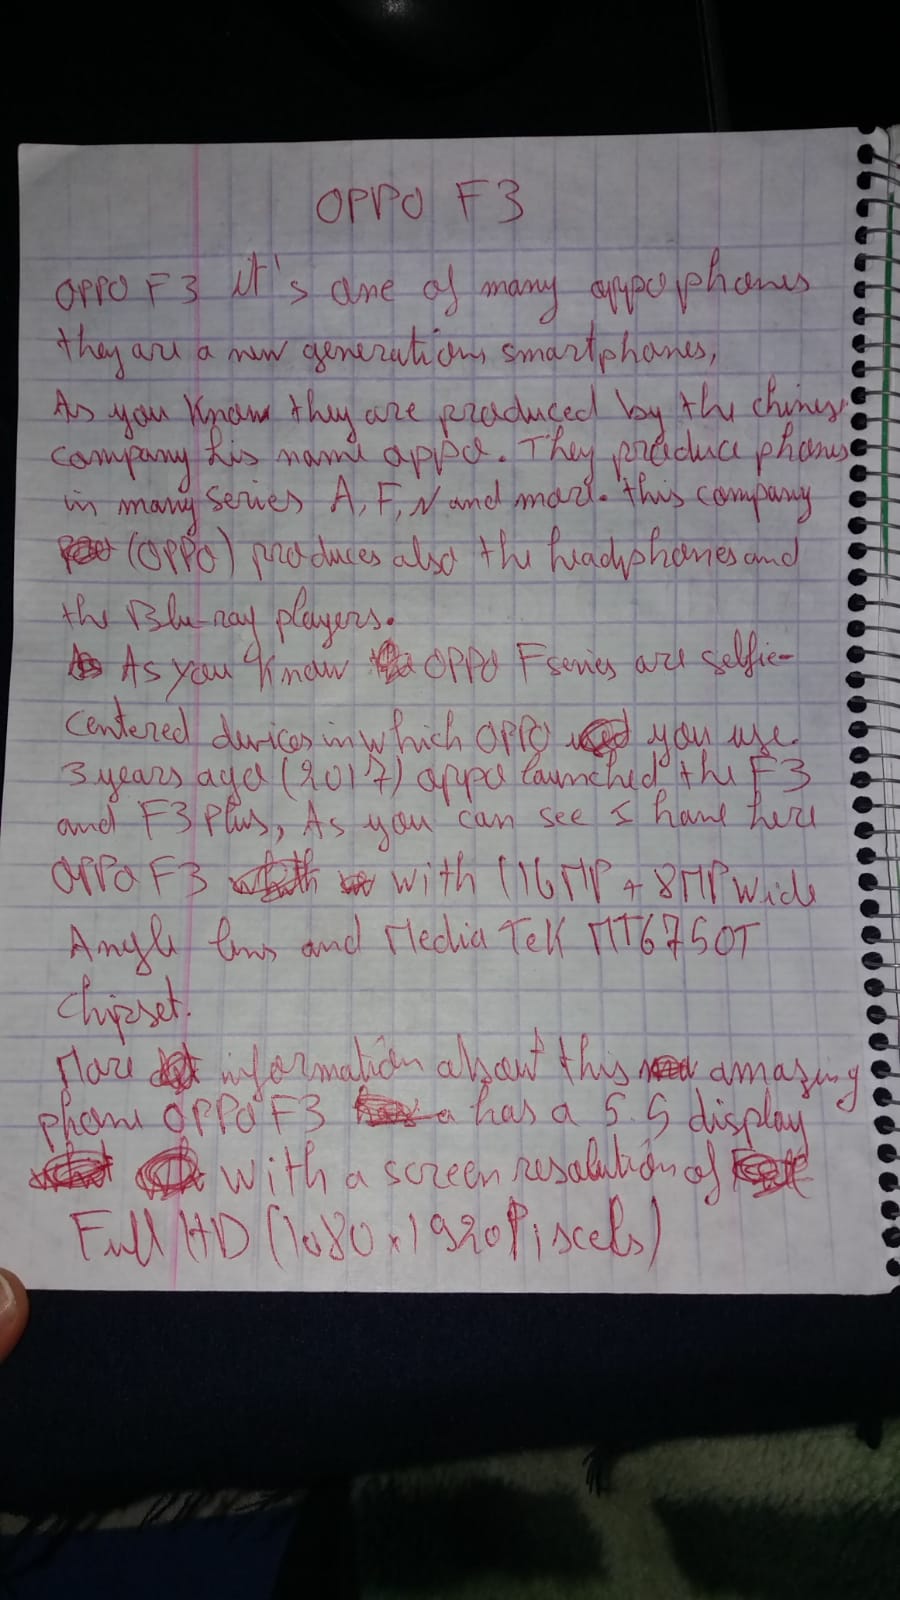 OPPO F3
OPPO F3 it's one of many oppo phones
they are a new generation smartphones,
As you know they are produced by the chines
company his name oppo. They produce phones
in many series A, F, N and more. this company
(OPPO) produces also the headphones and
the Blu-ray players.
As you know OPPO F series are selfie-
centered devices in which OPPO you use.
3 years ago (2017) oppo launched the F3
and F3 Plus, As you can see I have here
OPPO F3 with (16MP + 8MP Wide
Angle lens and Media Tek MT6750T
chipset.
More information about this amazing
phone OPPO F3 a has a 5.5 display
with a screen resolution of
Full HD (1080 x 1920 Piscels)